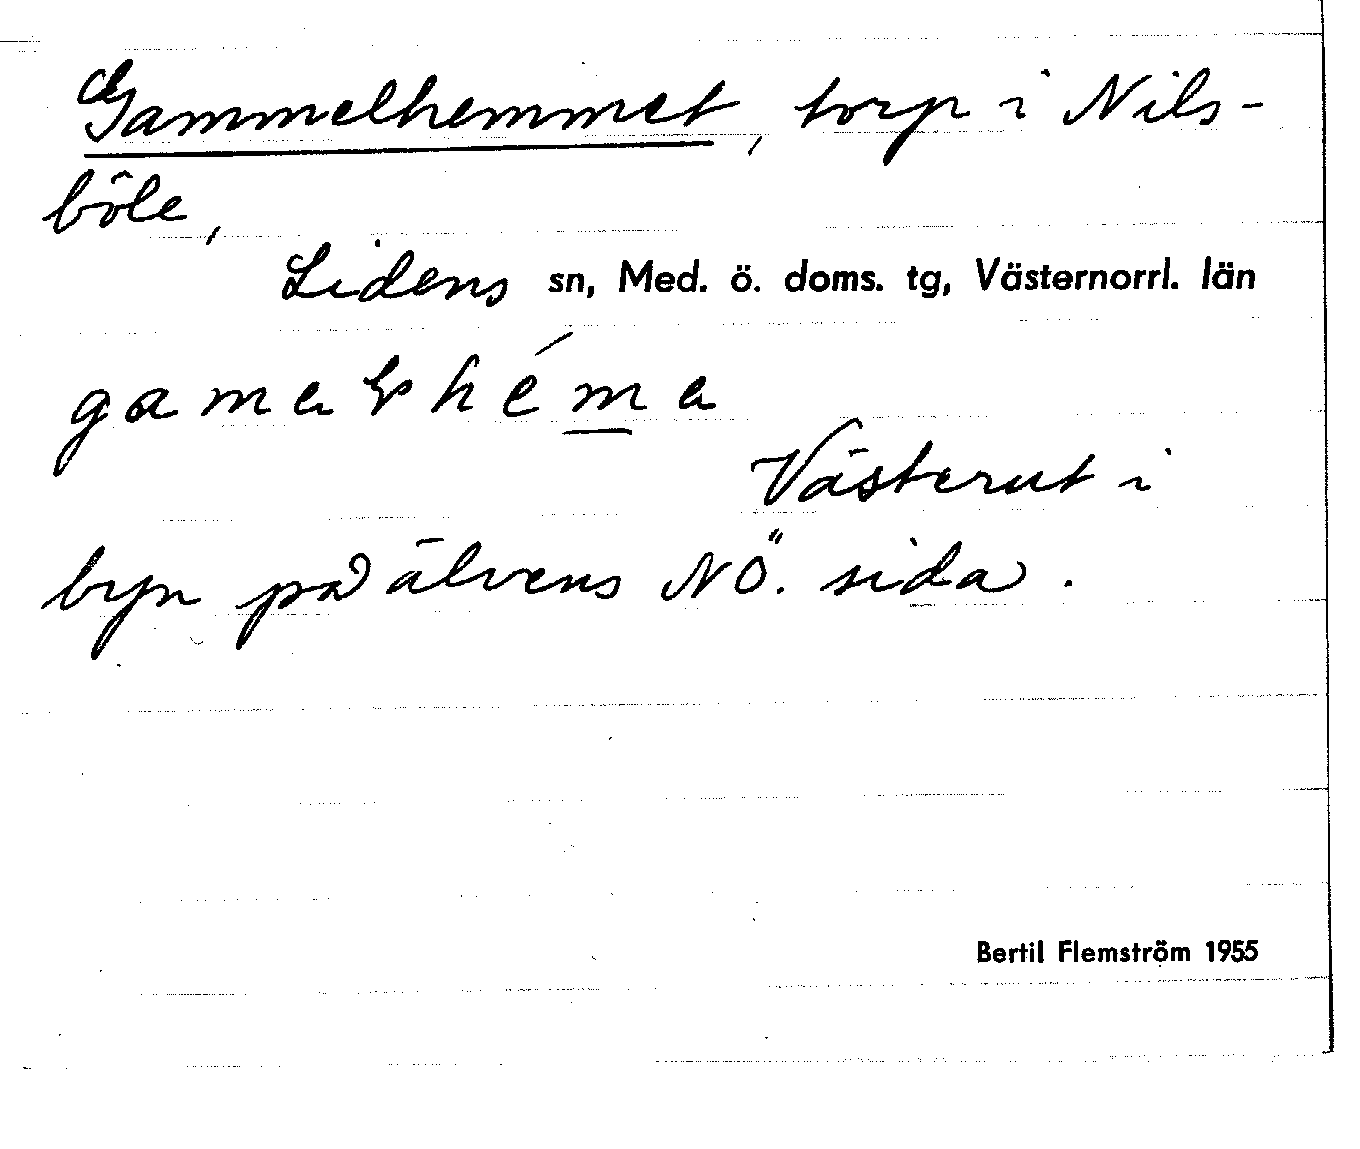 Gammelhemmet, torp i Nils-
böle,
Lidens sn, Med. ö. doms. tg, Västernorrl. län
Västerut i
byn på älvens NÖ. sida.
Bertil Flemström 1955